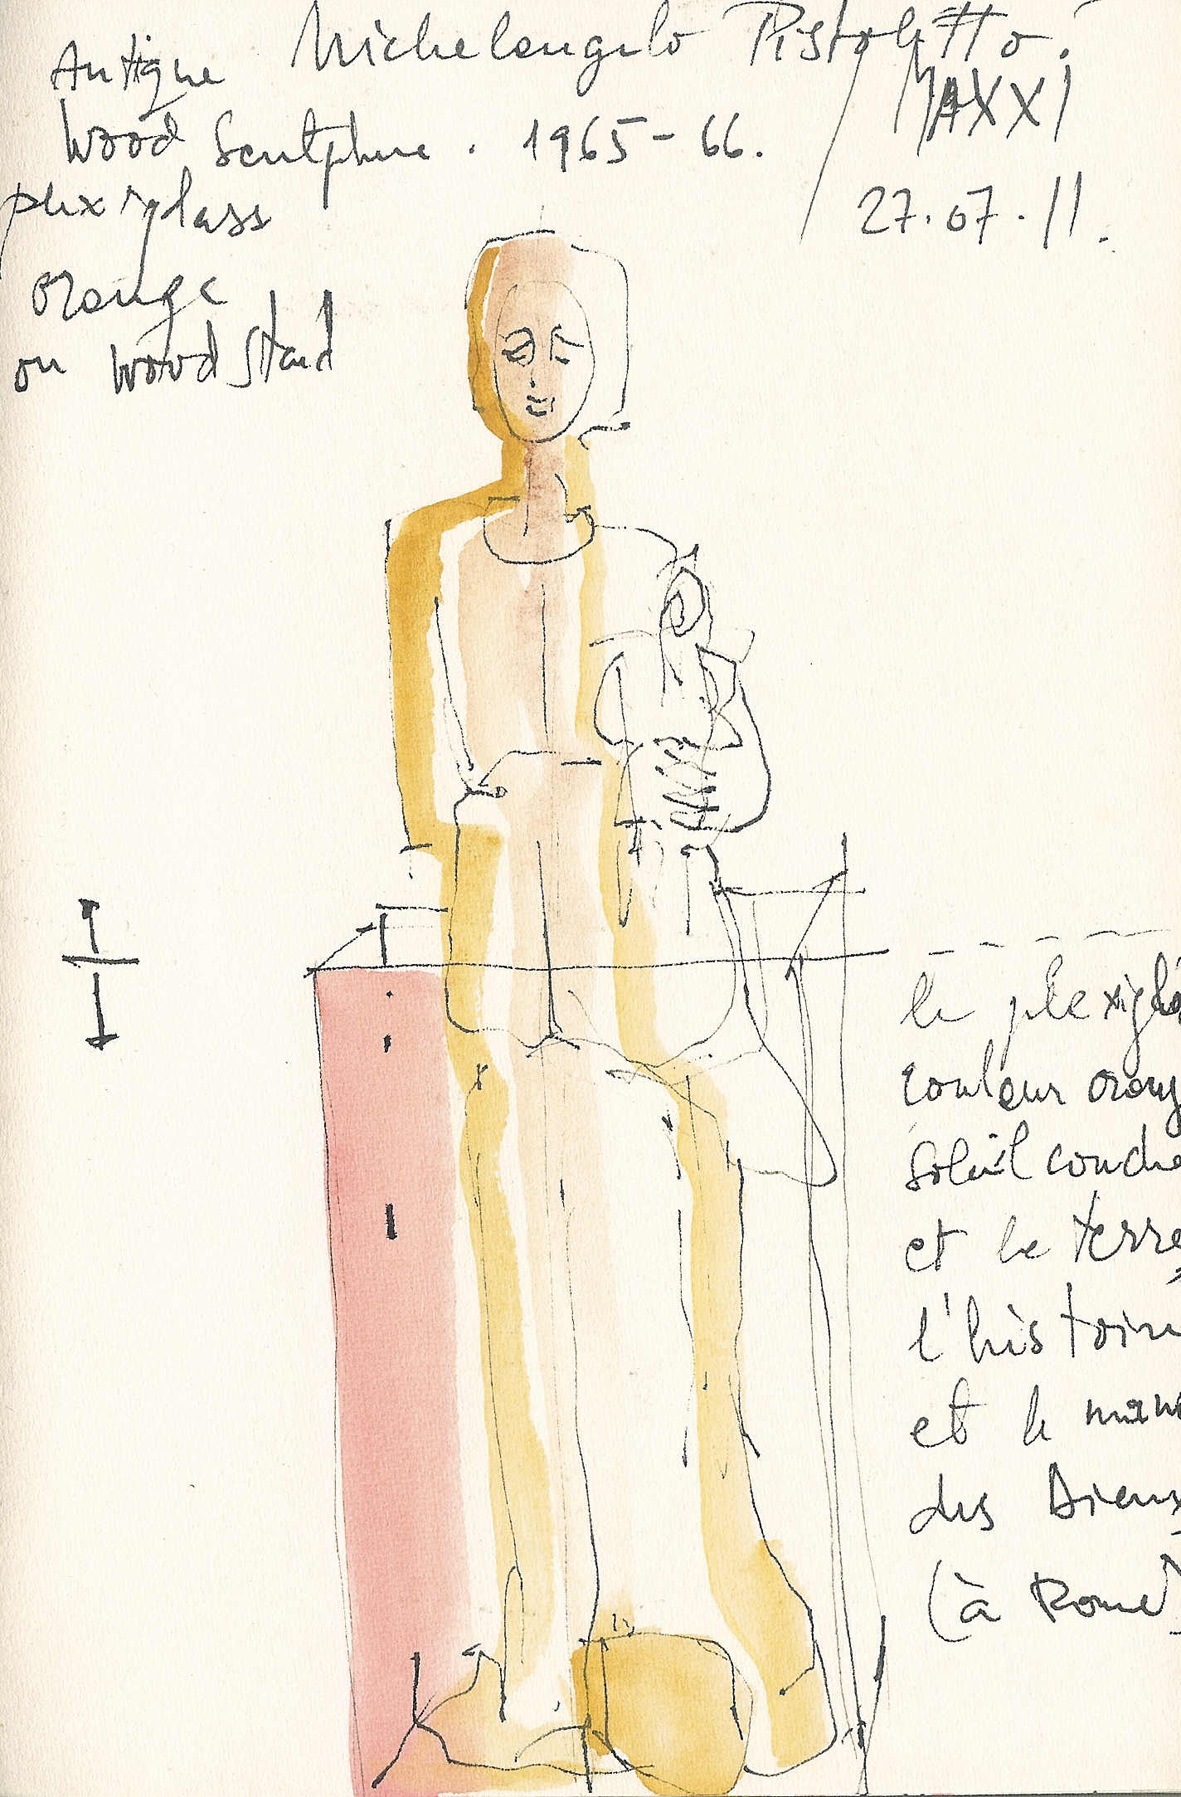 Michelangelo Pistoletto.
Antique
Wood Sculpture. 1965-66.
MAXXI
plexiglass
27.07.11.
orange
on wood stand
le plexigla
couleur orang
Soleil couche
et le terre
l'histoire
et le
des
(à Rome)